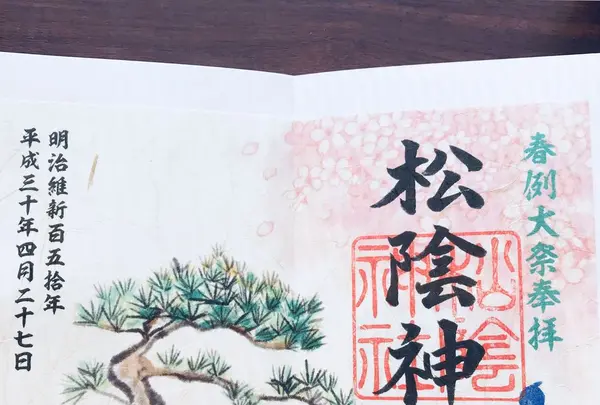 春例大祭奉拝
松陰神
松陰神社
明治維新百五拾年
平成三十年四月二十七日